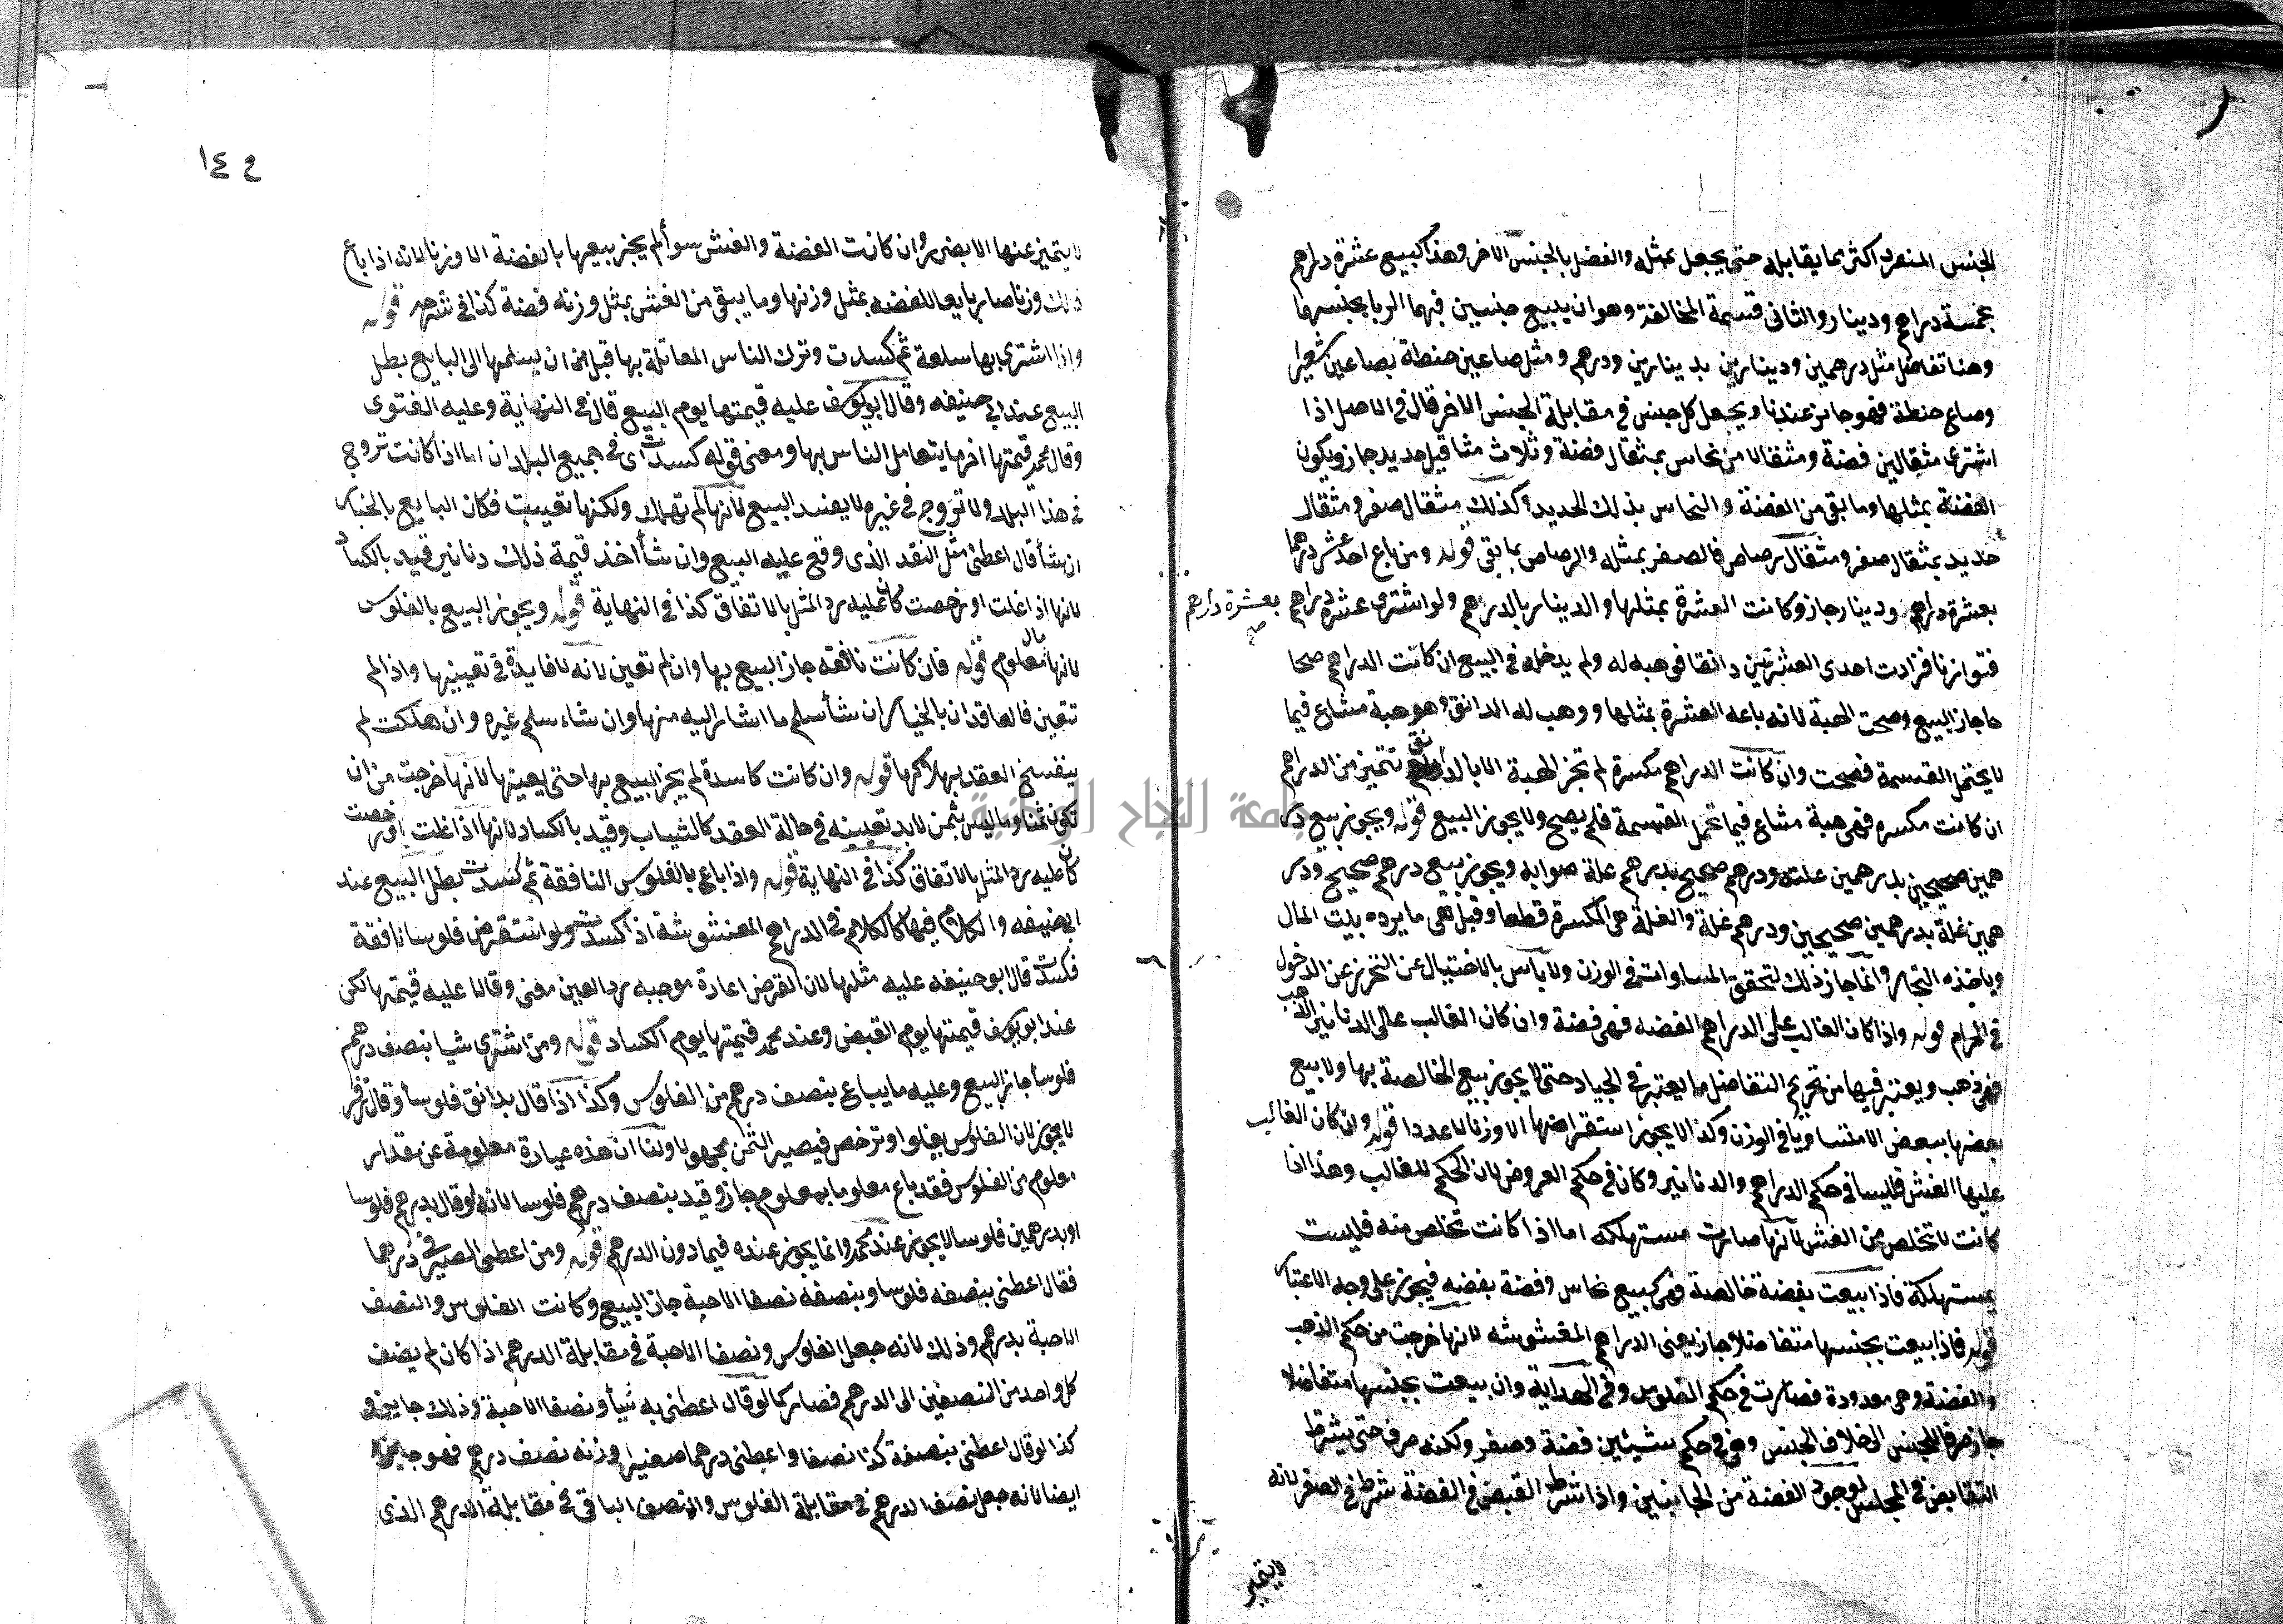 الجنس المنفرد اكثر مما يقابله حتى يجعل بمثله والفضل بالجنس الاخر وهذا كبيع عشرة دراهم
بخمسة دراهم ودينار والثانى قسمة المخالفة وهو ان يبيع جنسين فيهما الربا بجنسهما
وهنا تفاضل مثل درهمين ودينارين بدينارين ودرهم ومثل صاعين حنطة بصاعين شعيرا
وصاع حنطة فهو جايز عندنا ويجعل كل جنس فى مقابلة الجنس الاخر قال فى الاصل اذا
اشترى مثقالين فضة ومثقالا من نحاس بمثقال فضة وثلاث مثاقيل حديد جاز ويكون
الفضة بمثلها وما بقى من الفضة والنحاس بذلك الحديد وكذلك مثقال صفر ومثقال
حديد بمثقال صفر ومثقال رصاص فالصفر بمثله والرصاص بما بقى قوله ومن باع احد عشر درهما
بعشرة دراهم ودينار جاز وكانت العشرة بمثلها والدينار بالدرهم ولو اشترى عشرة دراهم
بعشرة دراهم صح
فتوازنا فزادت احدى العشرتين دانقا فوهبه له ولم يدخله فى البيع ان كانت الدراهم صحا
حا جاز البيع وصحت الهبة لانه باعه العشرة بمثلها ووهب له الدانق وهو هبة مشاع فيما
لا يحتمل القسمة فصحت وان كانت الدراهم مكسرة لم تجز الهبة الا بالدانق تتميز من الدراهم
ان كانت مكسره فهى هبة مشاع فيما تحتمل القسمة فلم يصح ولا يجوز البيع قوله ويجوز بيع در
همين صحيحين بدرهمين علته ودرهم صحيح بدرهم علة صوابه ويجوز بيع درهم صحيح ودر
همين غلة بدرهمين صحيحين ودرهم غلة والغلة هى المكسرة قطعا وقيل هى ما يرده بيت المال
وياخذه التجار وانما جاز ذلك لتحقق المساوات فى الوزن ولا باس بالاحتيال عن التحرز عن الدخول
فى الحرام قوله واذا كان الغالب على الدراهم الفضه فهى فضة وان كان الغالب على الدنانير الذهب
فهى ذهب ويعتبر فيها من تحريم التفاضل ما يعتبر فى الجياد حتى لا يجوز بيع الخالصة بها ولا بيع
بعضها ببعض الا متساويا فى الوزن وكذا لا يجوز استقراضها الا وزنا لا عددا قوله وان كان الغالب
عليها الغش فليسا فى حكم الدراهم والدنانير وكان فى حكم العروض لان الحكم للغالب وهذا اذا
كانت لا تتخلص من الغش لانها صارت مستهلكه اما اذا كانت تخلص منه فليست
بمستهلكة فاذا بيعت بفضة خالصة فهى كبيع نحاس وفضة بفضه فيجوز على وجه الاعتبار
قوله فاذا بيعت بجنسها متفاضلا جاز يعنى الدراهم المغشوشه لانها خرجت من حكم الذهب
والفضة وهى معدودة فصارت فى حكم الفلوس وفى الهداية وان بيعت بجنسها متفاضلا
جاز صرفا للجنس الى خلاف الجنس وهى فى حكم شيئين فضة وصفر ولكنه صرف حتى يشترط
التقابض فى المجلس لوجود الفضة من الجانبين واذا شرط القبض فى الفضة شرط فى الصفر لانه
لا يتميز
١٤٥
لا يتميز عنها الا بضرر وان كانت الفضة والغش سوأ لم يجز بيعها بالفضة الا وزنا لانه اذا باع
ذلك وزنا صار بايعا للفضه بمثل وزنها وما يبقى من الغش بمثل وزنه فضة كذا فى شرحه قوله
واذا اشترى بها سلعة ثم كسدت وترك الناس المعاملة بها قبل ان يسلمها الى البايع بطل
البيع عند ابى حنيفه وقال ابو يوسف عليه قيمتها يوم البيع قال فى النهاية وعليه الفتوى
وقال محمد قيمتها اخر ما يتعامل الناس بها ومعنى قوله كسدت اى فى جميع البلدان اما اذا كانت تروج
فى هذا البلد ولا تروج فى غيره لا يفسد البيع لانها لم تهلك ولكنها تعيبت فكان البايع بالخيار
ان شأ قال اعطنى مثل النقد الذى وقع عليه البيع وان شأ اخذ قيمة ذلك دنانير قيد بالكساد
لانها اذا غلت او رخصت كان عليه رد المثل بالاتفاق كذا فى النهاية قوله ويجوز البيع بالفلوس
لانها مال معلوم قوله فان كانت نافقه جاز البيع بها وان لم تعين لانه لا فايدة فى تعيينها واذا لم
تتعين فالعاقدان بالخيار ان شأ سلم ما اشار اليه منها وان شاء سلم غيره وان هلكت لم
ينفسخ العقد بهلاكها قوله وان كانت كاسدة لم يجز البيع بها حتى يعينها لانها خرجت من ان
تكون ثمنا وما ليس بثمن لابد تعيينه فى حالة العقد كالثياب وقيد بالكساد لانها اذا غلت او رخصت
كان عليه رد المثل بالاتفاق كذا فى النهاية قوله واذا باع بالفلوس النافقة ثم كسدت بطل البيع عند
ابى حنيفه والكلام فيها كالكلام فى الدراهم المغشوشة اذا كسدت ولو استقرض فلوسا نافقة
فكسدت قال ابو حنيفه عليه مثلها لان القرض اعارة موجبه رد العين معنى وقالا عليه قيمتها لكن
عند ابو يوسف قيمتها يوم القبض وعند محمد قيمتها يوم الكساد قوله ومن اشترى شيا بنصف درهم
فلوسا جاز البيع وعليه ما يباع بنصف درهم من الفلوس وكذا اذا قال بدانق فلوسا وقال زفر
لا يجوز لان الفلوس يغلو او ترخص فيصير الثمن مجهولا ولنا ان هذه عبارة معلومة عن مقدار
معلوم من الفلوس فقد باع معلوما بمعلوم جاز وقيد بنصف درهم فلوسا لانه لو قال بدرهم فلوسا
او بدرهمين فلوسا لا يجوز عند محمد وانما يجوز عنده فيما دون الدرهم قوله ومن اعطى الصيرفى درهما
فقال اعطنى بنصفه فلوسا وبنصفه نصفا الا حبة جاز البيع وكانت الفلوس والنصف
الا حبة بدرهم وذلك لانه جعل الفلوس ونصفا الا حبة فى مقابلة الدرهم اذا كان لم يضف
كل واحد من النصفين الى الدرهم فصار كما لو قال اعطنى به شيأ ونصفا الا حبة وذلك جايز و
كذا لو قال اعطنى بنصفة كذا نصفا واعطنى درهما صغيرا وزنه نصف درهم فهو جايز
ايضا لانه جعل نصف الدرهم فى مقابلة الفلوس والنصف الباقى فى مقابلة الدرهم الذى
جامعة النجاح الوطنية